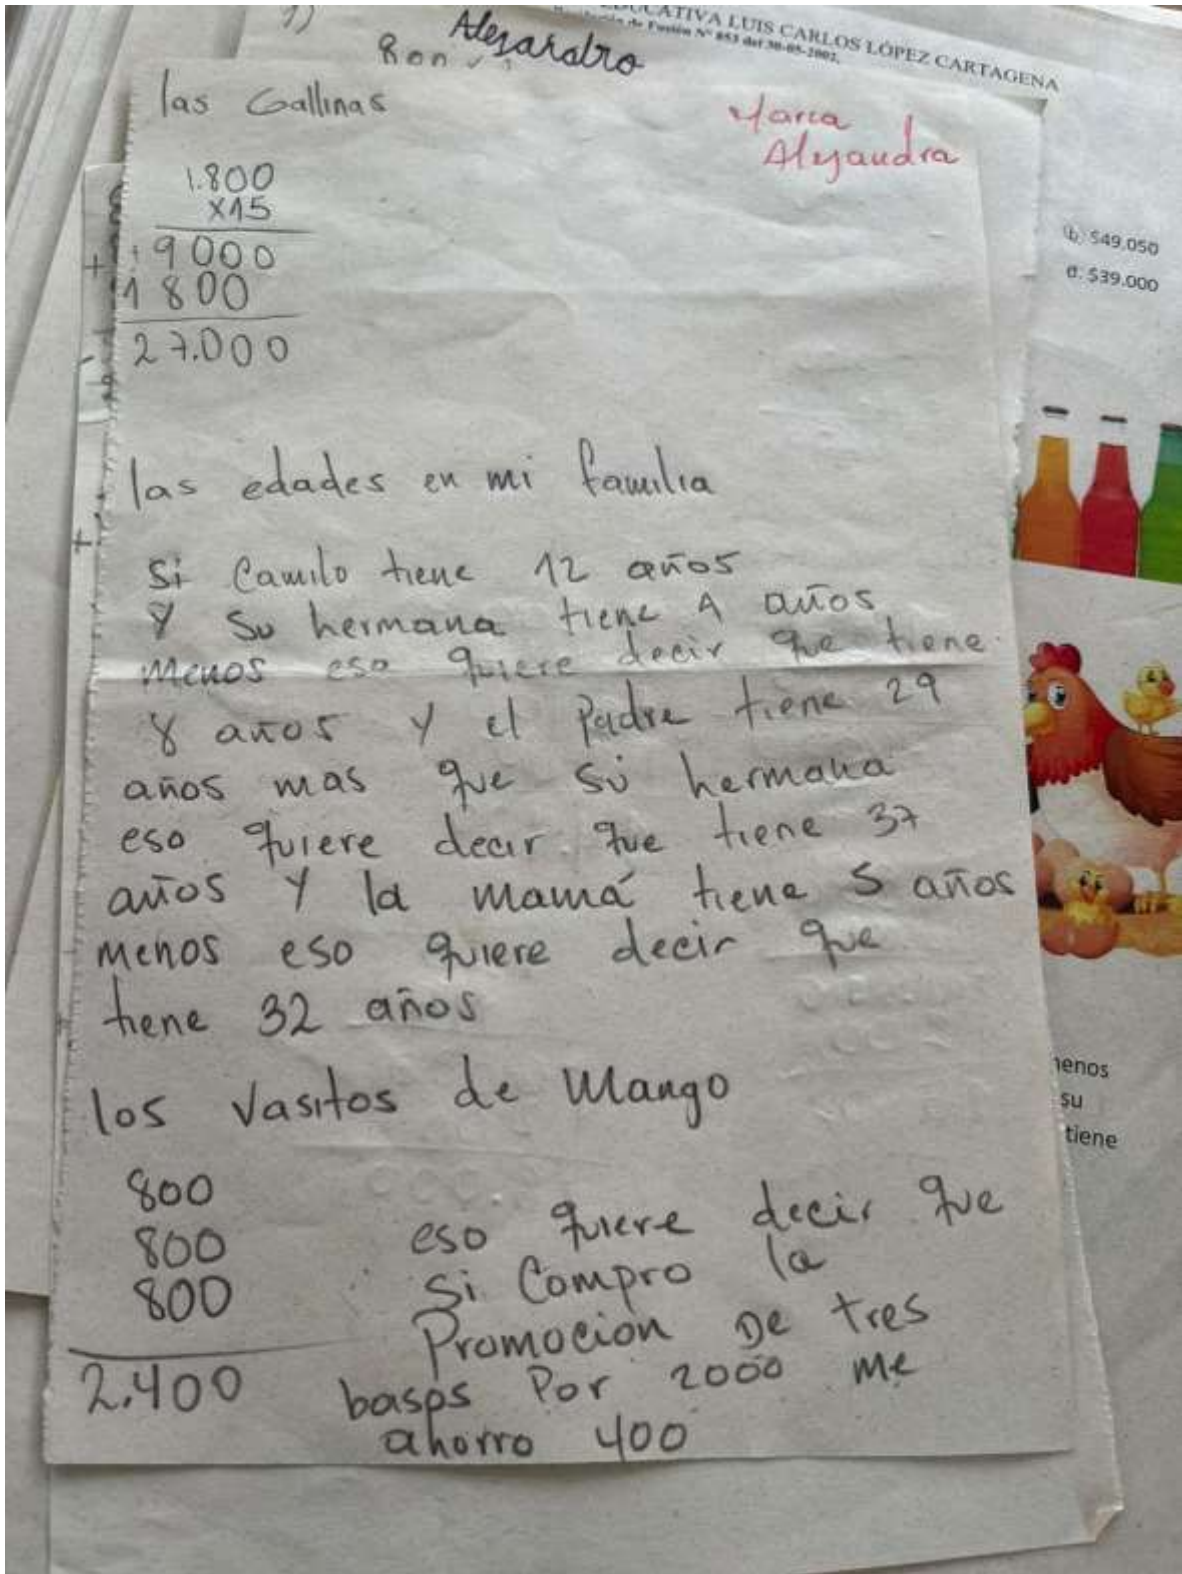 1)
Alejandro
EDUCATIVA LUIS CARLOS LÓPEZ CARTAGENA
de Fusión N° 853 del 30-05-2002.
las Gallinas
Maria
Alejandra
1.800
X15
+ 9000
1800
27.000
b. $49.050
d. $39.000
las edades en mi familia
Si Camilo tiene 12 años
Y Su hermana tiene 4 años
menos eso quiere decir que tiene
8 años y el Padre tiene 29
años mas que su hermana
eso quiere decir que tiene 37
años Y la mamá tiene 5 años
menos eso quiere decir que
tiene 32 años
enos
su
tiene
los Vasitos de Mango
800
800
800
2.400
eso quiere decir que
Si Compro la
Promocion De tres
basos Por 2000 me
ahorro 400